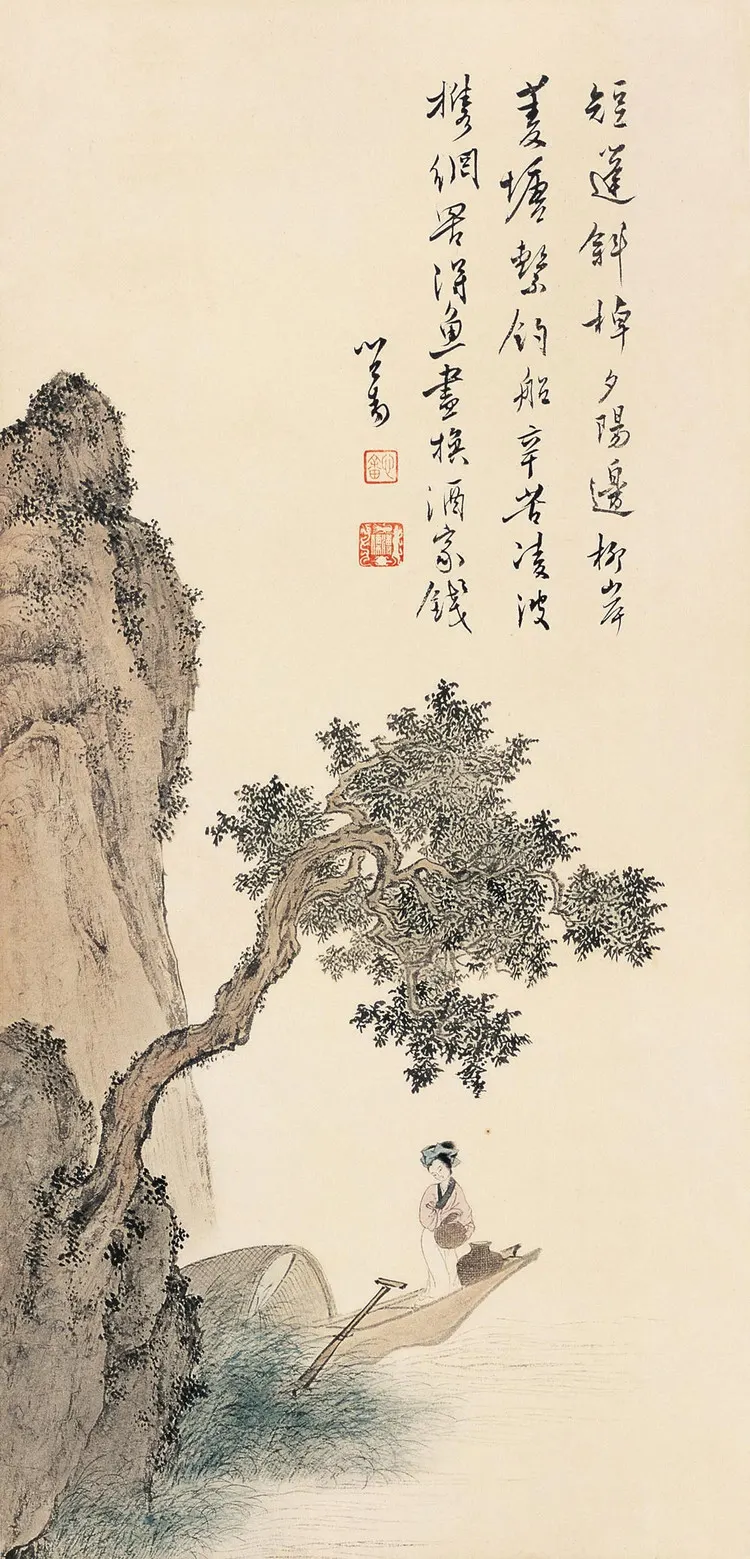 短蓬斜棹夕陽邊柳岸
菱塘繫釣船辛苦凌波
携網罟得魚盡換酒家錢
心畬
心畬